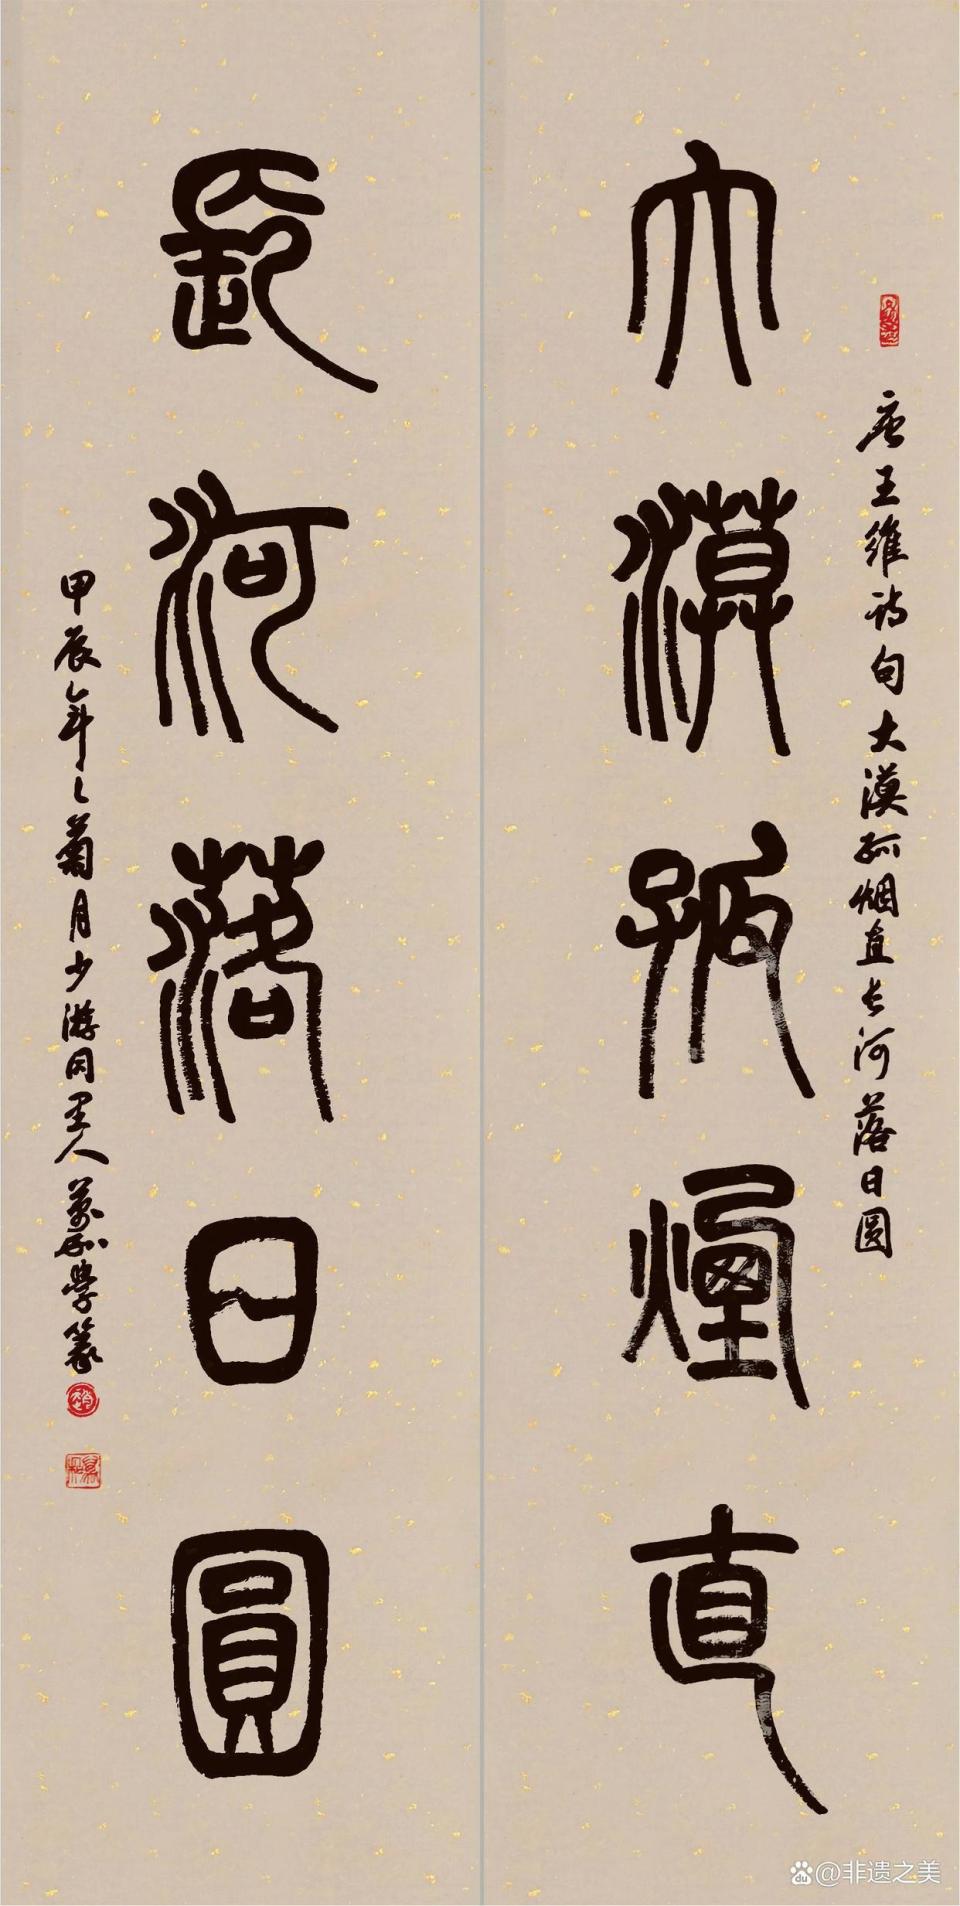 大漠孤煙直
唐王維詩句大漠孤烟直长河落日圆
長河落日圓
甲辰年之菊月少游同里人萬和学篆
@非遗之美